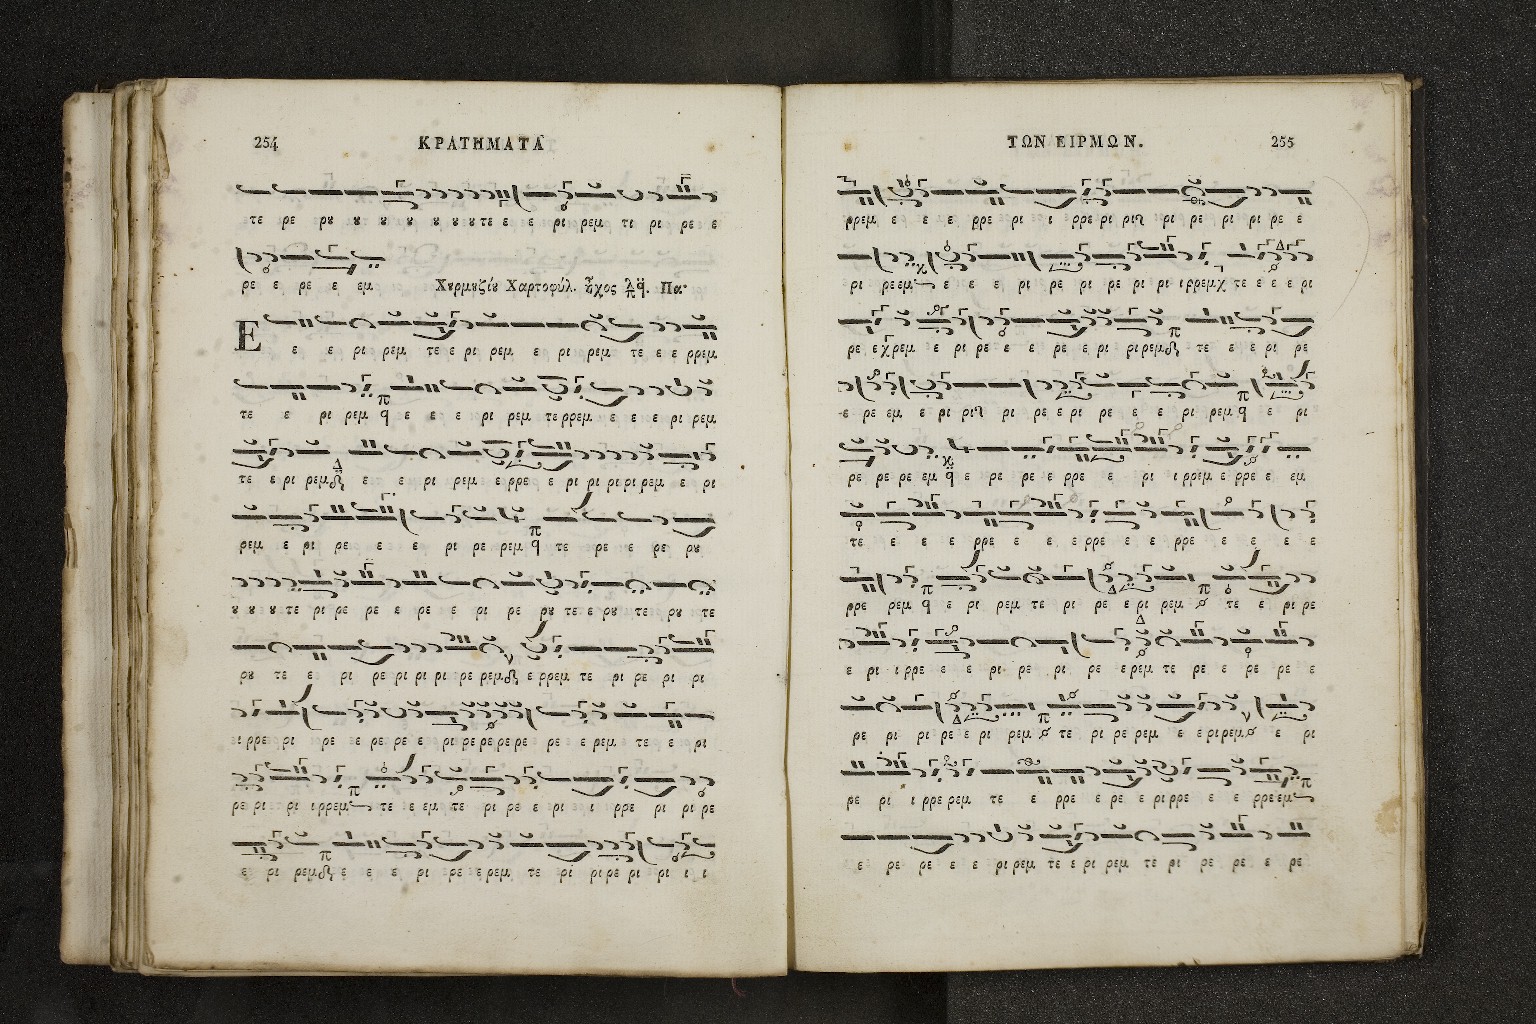 254 ΚΡΑΤΗΜΑΤΑ
τε ρε ρȣ ȣ ȣ ȣ ȣ ȣ ȣ τε ε ε ρι ρεμ τι ρι ρε ε
ρε ε ρε ε εμ Χȣρμȣζίȣ Χαρτοφύλ. ἦχος λπ q̈. Πα·
Ε ε ε ρι ρεμ τε ε ρι ρεμ ε ρι ρεμ τε ε ε ρρεμ
τε ε ρι ρεμ q ε ε ε ρι ρεμ τε ρρεμ ε ε ε ρι ρεμ
τε ε ρι ρεμ ε ε ρι ρεμ ε ρρε ε ρι ρι ρι ρι ρεμ ε ρι
ρεμ ε ρι ρε ε ε ρι ρε ρεμ q τε ρε ε ρε ρȣ
ȣ ȣ ȣ τε ρι ρε ρε ε ρε ε ρι ρε ρȣ τε ε ρȣ τε ρȣ τε
ρȣ τε ε ρι ρε ρι ρι ρι ρε ρεμ ε ρρεμ τε ρι ρε ρι ρι
ι ρρε ρι ρε ε ρε ρε ε ρι ρε ρε ρε ρε ρε ε ρεμ τε ε ρι
ρε ρι ρι ι ρρεμ τε ε εμ τε ρι ρε ε ρι ι ρρε ρι ρι ρε
ε ρι ρεμ ε ε ε ρι ρε ε ρεμ τε ρι ρι ρε ρι ρι ι ι
ΤΩΝ ΕΙΡΜΩΝ. 255
ρρεμ ε ε ε ρρε ρι ι ρρε ρι ρι ρι ρε ρι ρι ρε ε
ρι ρε εμ ε ε ε ρι ρε ρι ρε ρι ρι ι ρρεμ χ τε ε ε ε ρι
ρε ε χ ρεμ ε ρι ρε ε ε ρε ε ρι ρι ρεμ τε ε ε ρι ρε
ε ρε εμ ε ρι ρι ρι ρε ε ρι ρε ε ε ρι ρεμ q ε ρι
ρε ρε ρε εμ q̈ ε ρε ρε ε ρρε ε ρι ι ρρεμ ε ρρε ε εμ
τε ε ε ε ρρε ε ε ε ρρε ε ε ρρε ε ε ε ε
ρρε ρεμ q ε ρι ρεμ τε ρι ρε ε ρι ρεμ τε ε ρι ρε
ε ρι ι ρρε ε ε ρι ρε ρι ρε ε ρεμ τε ρε ε ρε ρε ε
ρε ρι ρι ρε ε ρι ρεμ τε ρι ρε ρεμ ε ε ρι ρεμ ε ρι
ρε ρι ι ρρε ρεμ τε ε ρρε ε ρε ε ρι ρρε ε ε ρρε εμ
ε ρε ρε ε ε ρι ρεμ τε ε ρι ρεμ τε ρι ρε ρε ε ρε